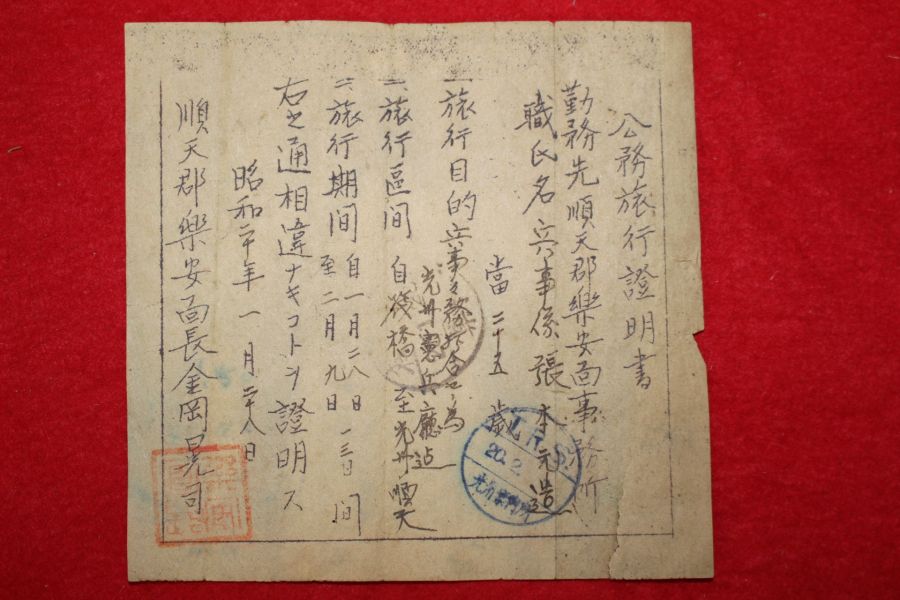 公務旅行證明書
勤務先順天郡樂安面事務所
職氏名 兵事係 張本元造
當二十五歲
一、旅行目的 兵事事務打合ノ為
光州憲兵廳迠
一、旅行區间 自筏橋至光州順天
二、旅行期间 自一月二八日
至二月九日 一三日间
右之通相違ナキコトヲ證明ス
昭和二十年一月二十八日
順天郡樂安面長金岡晃司
20.2